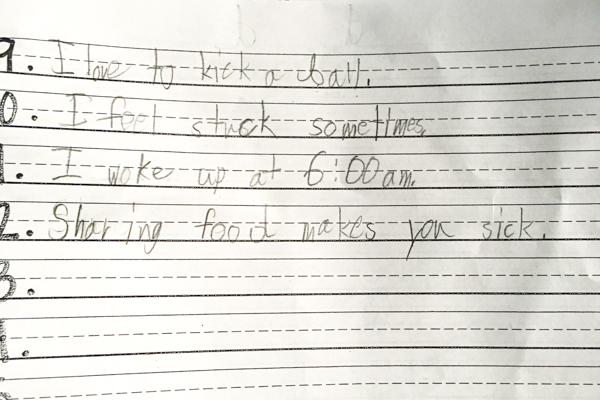 9. I love to kick a ball.
0. I feel stuck sometimes.
1. I woke up at 6:00 am.
2. Sharing food makes you sick.
3.
.